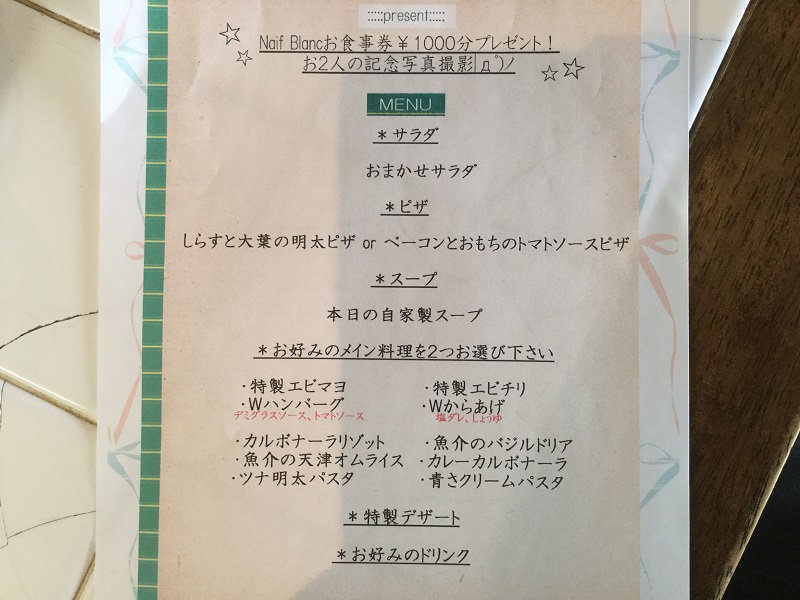 :::::present:::::
Naif Blancお食事券￥1000分プレゼント！
お2人の記念写真撮影|дﾟ)ノ
MENU
＊サラダ
おまかせサラダ
＊ピザ
しらすと大葉の明太ピザ or ベーコンとおもちのトマトソースピザ
＊スープ
本日の自家製スープ
＊お好みのメイン料理を2つお選び下さい
・特製エビマヨ ・特製エビチリ
・Wハンバーグ ・Wからあげ
デミグラスソース、トマトソース 塩ダレ、しょうゆ
・カルボナーラリゾット ・魚介のバジルドリア
・魚介の天津オムライス ・カレーカルボナーラ
・ツナ明太パスタ ・青さクリームパスタ
＊特製デザート
＊お好みのドリンク